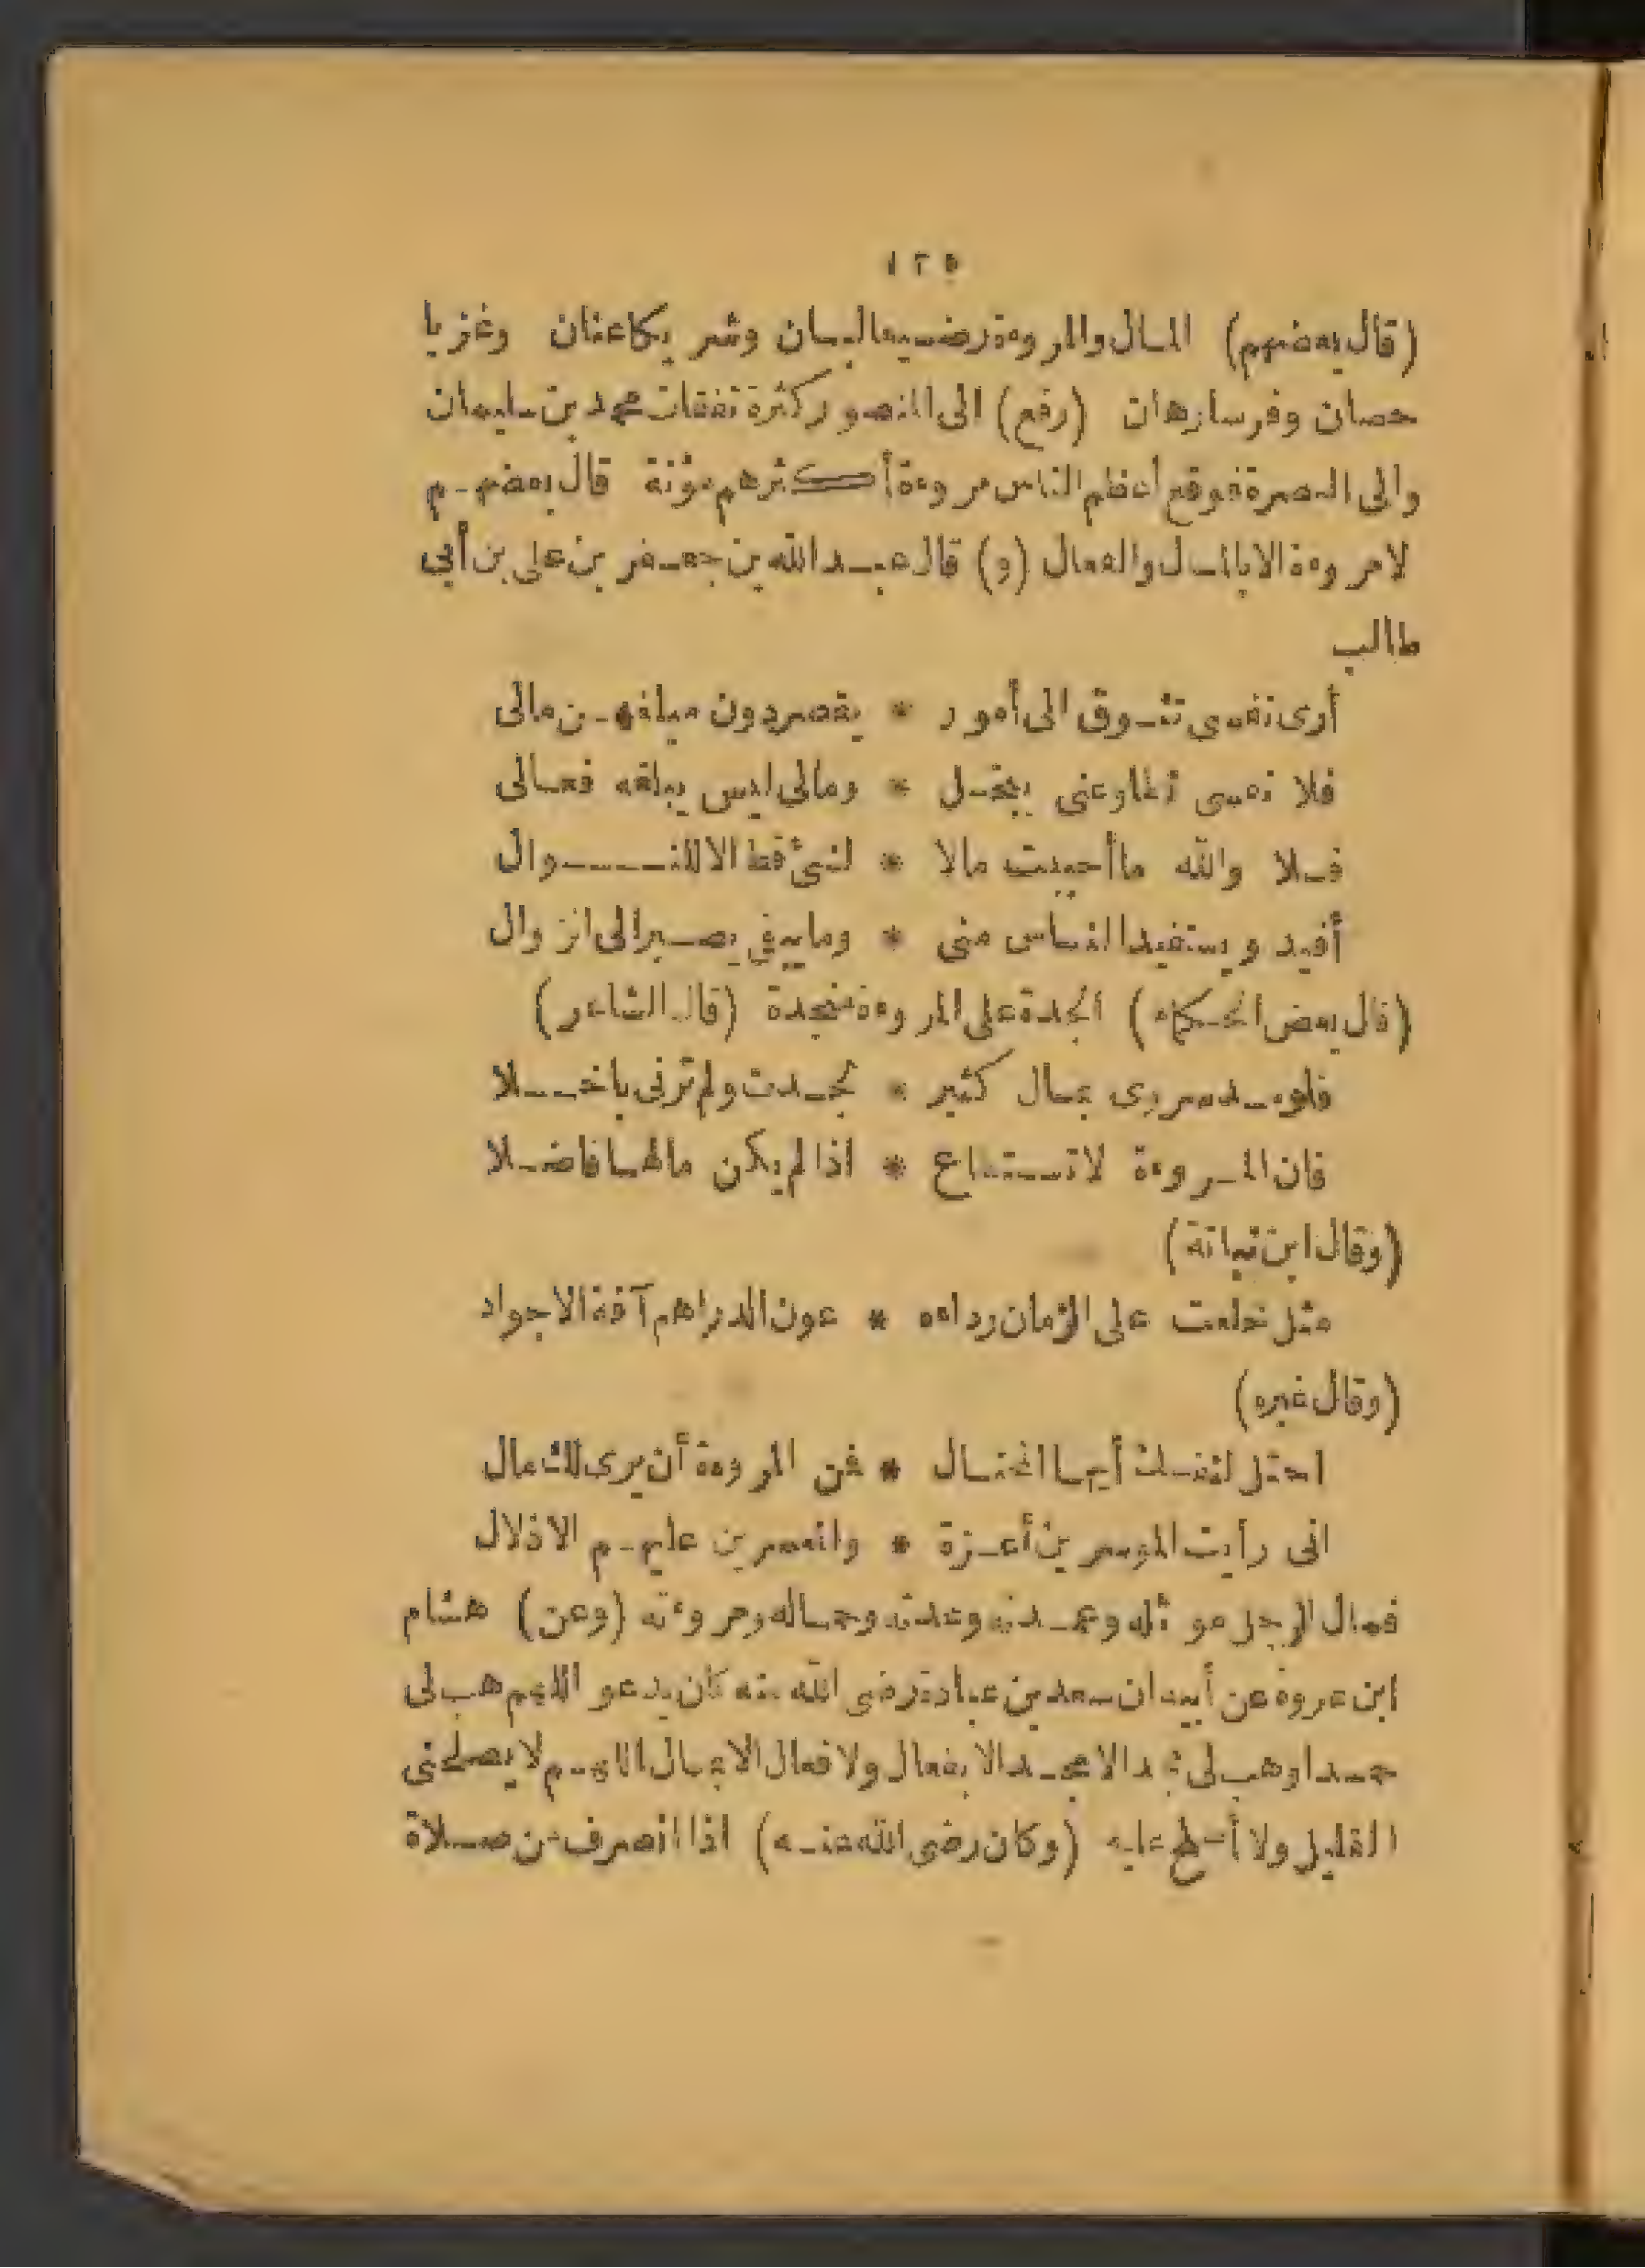 ١٢٥
(قال بعضهم) المال والمروءة رضيعا لبان وشريكا عنان وغزيا
حصان وفرسا رهان (رفع) الى المنصور كثرة نفقات محمد بن سليمان
والى البصرة فوقع أعظم الناس مروءة أكثرهم مؤنة قال بعضهم
لا مروءة الا بالمال والفعال (و) قال عبد الله بن جعفر بن على بن أبي
طالب
أرى نفسى تتوق الى أمور * يقصر دون مبلغهن مالى
فلا نفسى تطاوعنى ببخل * ومالى ليس يبلغه فعالى
فلا والله ما أحببت مالا * لشئ قط الا للنوال
أفيد ويستفيد الناس منى * وما يبقى يصير الى الزوال
(قال بعض الحكماء) الجدة على المروءة منجدة (قال الشاعر)
فلو مد سروى بمال كثير * لجدت ولم ترنى باخلا
فان المروءة لا تستطاع * اذا لم يكن مالها فاضلا
(وقال ابن نباتة)
مثل خلعت على الزمان رداءه * عون الدراهم آفة الاجواد
(وقال غيره)
احتل لنفسك أيها المحتال * فمن المروءة أن يرى لك مال
انى رأيت الموسرين أعزة * والمعسرين عليهم الاذلال
فمال الرجل موئله وعمدته وعدته وجماله ومروءته (وعن) هشام
ابن عروة عن أبيه ان سعد بن عبادة رضى الله عنه كان يدعو اللهم هب لى
حمدا وهب لى مجدا لا مجد الا بفعال ولا فعال الا بمال اللهم لا يصلحنى
القليل ولا أصلح عليه (وكان رضى الله عنه) اذا انصرف من صلاة